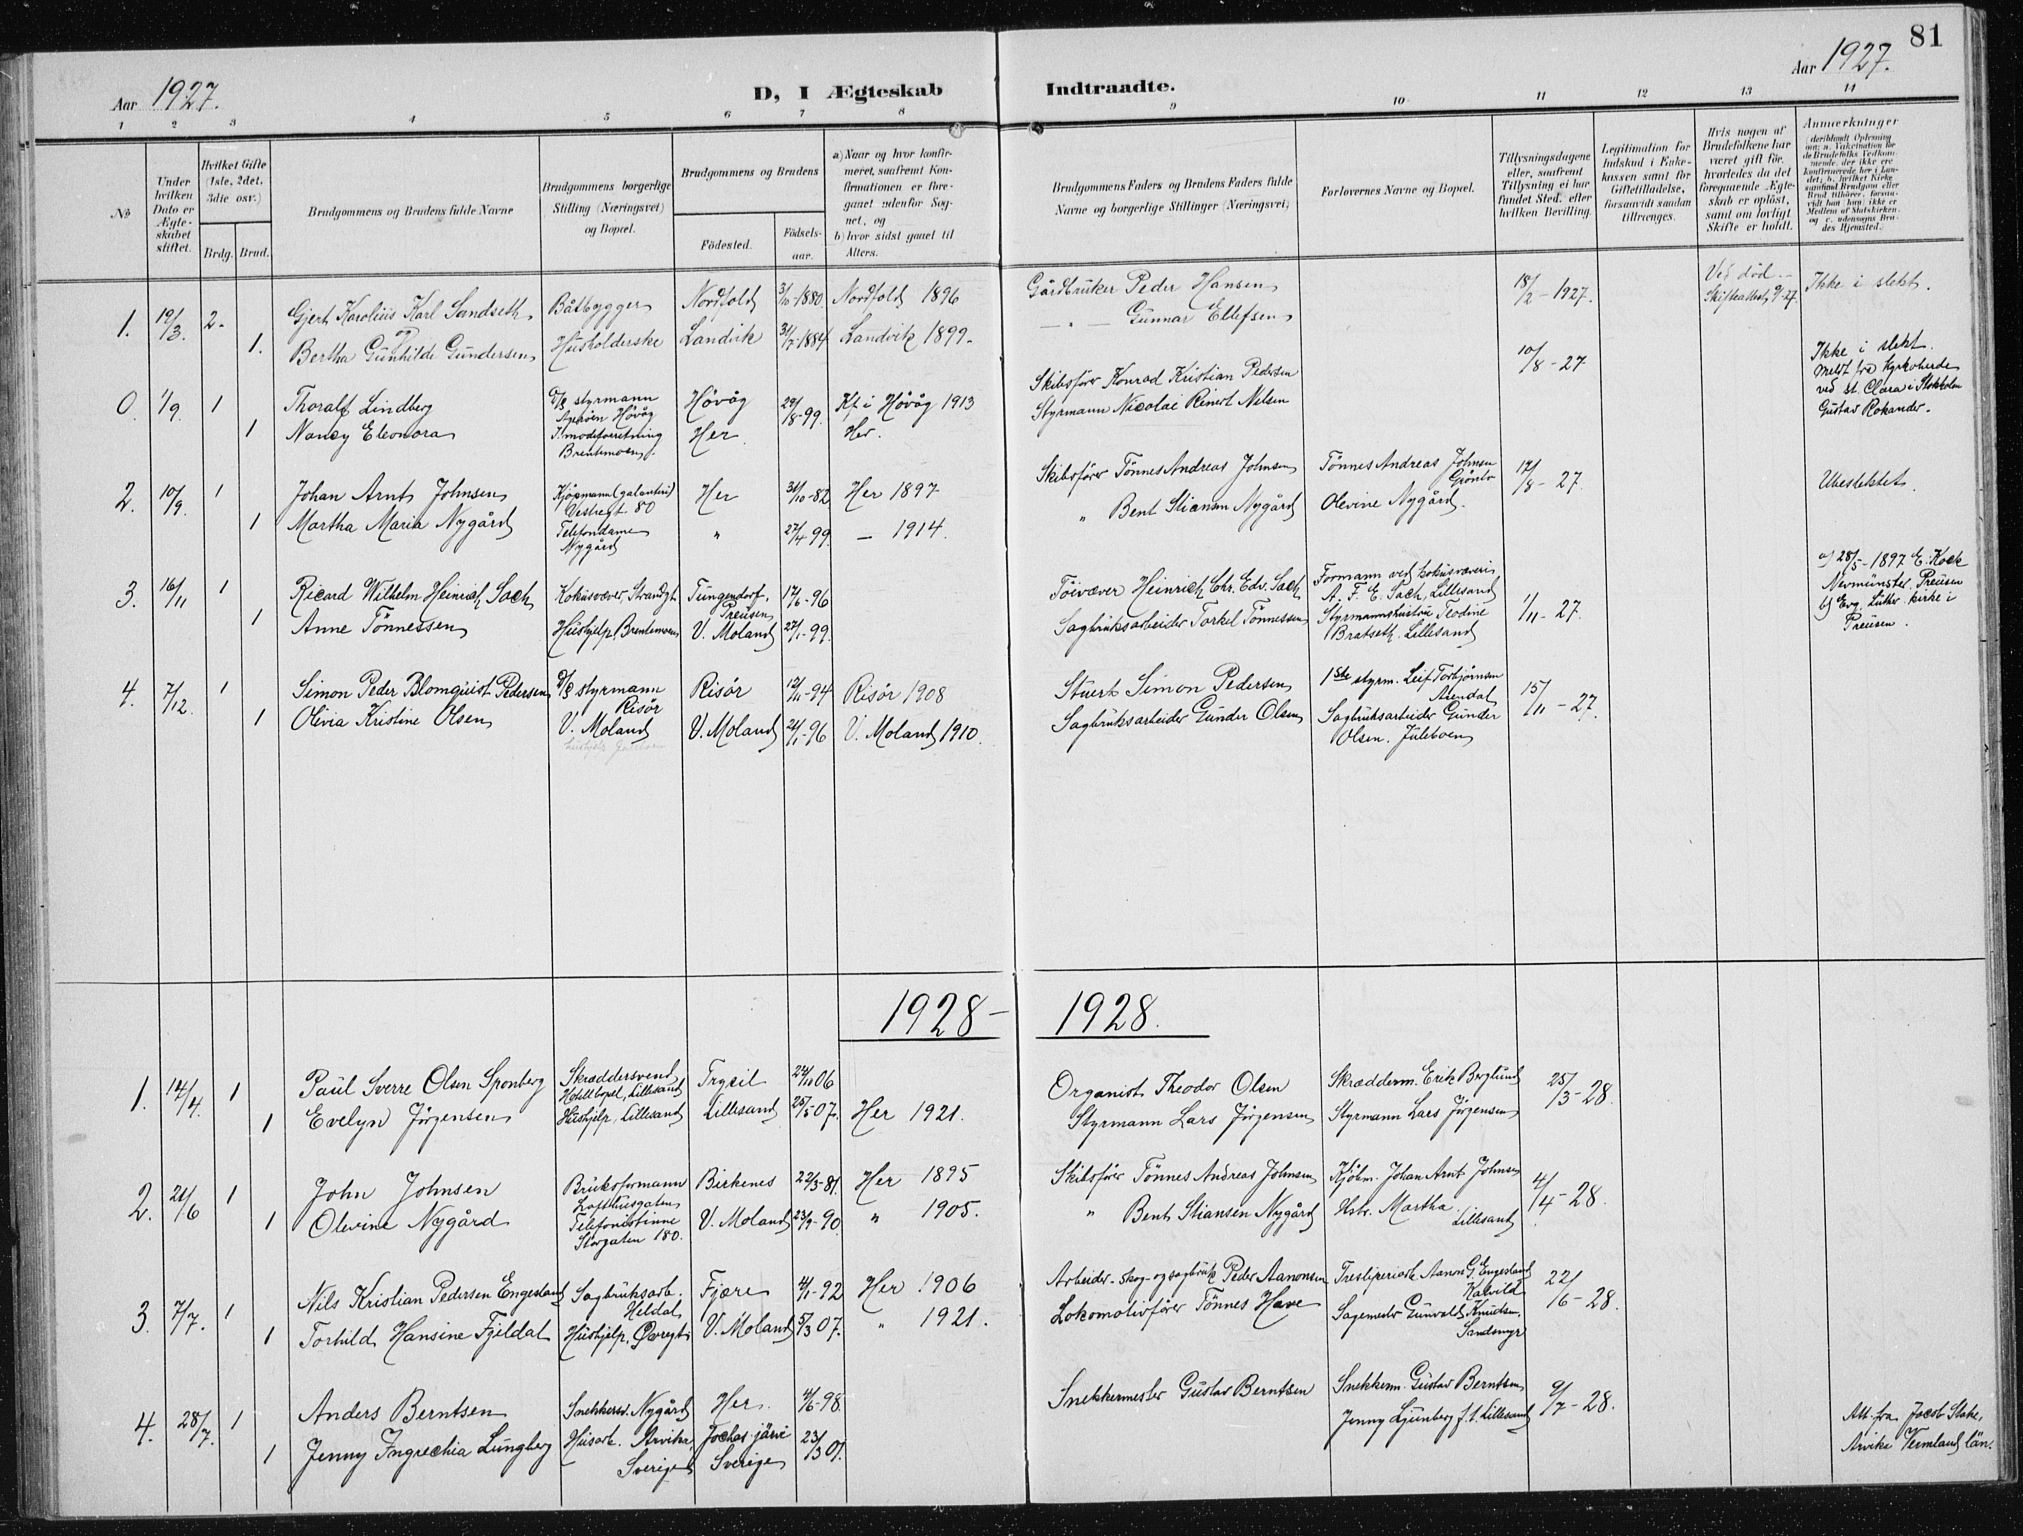 81
Aar 1927.
D, I Ægteskab
Indtraadte.
Aar 1927.
1 2 3 4 5 6 7 8 9 10 11 12 13 14
No
Under hvilken Dato er Ægteskabet stiftet.
Hvilket Gifte (1ste, 2det, 3die osv.)
Brdg. Brud.
Brudgommens og Brudens fulde Navne
Brudgommens borgerlige Stilling (Næringsvei) og Bopæl.
Brudgommens og Brudens
Födested.
Födselsaar.
a) Naar og hvor konfirmeret, saafremt Konfirmationen er foregaaet udenfor Sognet, og
b) hvor sidst gaaet til Alters.
Brudgommens Faders og Brudens Faders fulde Navne og borgerlige Stillinger (Næringsvei)
Forlovernes Navne og Bopæl.
Tillysningsdagene eller, saafremt Tillysning ei har fundet Sted, efter hvilken Bevilling.
Legitimation for Indskud i Enkekassen samt for Giftetilladelse, forsaavidt saadan tiltrænges.
Hvis nogen af Brudefolkene har været gift før, hvorledes da det foregaaende Ægteskab er oplöst, samt om lovligt Skifte er holdt.
Anmærkninger
1. 19/3. 2. Gjert Karolius Karl Sandseth Båtbygger Nordfold 3/10-1880 Nordfold 1896 Gårdbruker Peder Hansen 18/2-1927. Ved død - Skifteattest 9/2-27. Ikke i slekt.
og
1. Bertha Gunhilde Gundersen Husholderske Landvik 31/7-1884 Landvik 1899. — " — Gunnar Ellefsen
0. 1/9. 1 Thoralf Lindberg D/S styrmann Høvåg 29/8-99 Kf i Høvåg 1913 Skibsfører Konrad Kristian Pedersen 10/8-27 Ikke i slekt.
Meldt fra Kyrkoherde
ved St. Clara i Stokholm
Gustav Rokander.
1 Nancy Eleonora I modeforretning Her. Her. Styrmann Nicolai Reinert Nelsen
Brentemoen.
2. 10/9. 1 Johan Arnt Johnsen Kjøpmann (galanteri) Her 31/10-82 Her 1897 Skibsfører Tønnes Andreas Johnsen Tönnes Andreas Johnsen 17/8-27. Ubeslektet.
Vestregt 80
1 Martha Maria Nygård Telefondame " 27/4 99. — 1914. " Bent Stiansen Nygård Olevine Nygård.
Nygård
3. 16/11 1 Ricard Wilhelm Heinrich Sach Kokusvæver, Strandgt Tungendorf, Preusen 17/6-96 Töivæver Heinrich Chr. Edv. Sach Formann ved kokusveveri 1/11-27. a) 28/5-1897 E. Kock
A. F. E. Sach, Lillesand Neumünster Preusen
1 Anne Tönnessen Hushjelp, Brentemoen V. Moland 27/1-99. Sagbruksarbeider Torkel Tönnessen Styrmannshustru Teodine b) Evg. Luther. kirke i
Bratseth. Lillesand Preusen.
4. 7/12. 1 Simon Peder Blomquist Pedersen D/S styrmann Risör 12/11-94 Risör 1908 Stuert Simon Pedersen 1ste styrm. Leif Torbjørnsen 15/11-27.
Risör Arendal
1 Olivia Kristine Olsen V. Moland V. Moland 21/1-96 V. Moland 1910. Sagbruksarbeider Gunder Olsen Sagbruksarbeider Gunder
Olsen. Juleboen
1928 — 1928.
1. 14/4. 1 Paul Sverre Olsen Sponberg Skræddersvend Trysil 24/11 06 Organist Theodor Olsen Skrædderm. Erik Berglund 25/3-28.
Lillesand
1 Evelyn Jørgensen Hushjelp, Lillesand Lillesand 25/5-07. Her 1921. Styrmann Lars Jørgensen Styrmann Lars Jørgensen
2. 21/6 1 John Johnsen Bruksformann Birkenes 22/3-81. Her 1895 Skibsfører Tönnes Andreas Johnsen Kjøbm. Johan Arnt Johnsen 4/4-28.
Lofthusgaten
1 Olevine Nygård Telefonistinne V. Moland 23/9-90. " 1905. " Bent Stiansen Nygård Hstr. Martha
Storgaten 180. Lillesand
3. 7/7. 1 Nils Kristian Pedersen Engesland Sagbruksarb. Fjære 4/1-92 Her 1906 Arbeider-skog-og sagbruk Peder Aanonsen Tresliperiarb Aanon G. Engesland 22/6-28.
Heldal Kalvild
1 Torhild Hansine Fjeldal Hushjelp, Øvregt V. Moland 5/3 07. " 1921. Lokomotivfører Tönnes Have Sagemester Gunvald Knudsen.
Sandsmyr
4. 28/7. 1 Anders Berntsen Snekkersv. Nygård Her. 4/6-98 Snekkermester Gustav Berntsen Snekkerm. Gustav Berntsen 9/7-28.
1 Jenny Ingrechia Lungberg Husarb. Arvika, Sverige 23/3 01. Jenny Ljunberg f.t. Lillesand Att. fra Jacob Stake,
Sverige Arvika Vermland län.